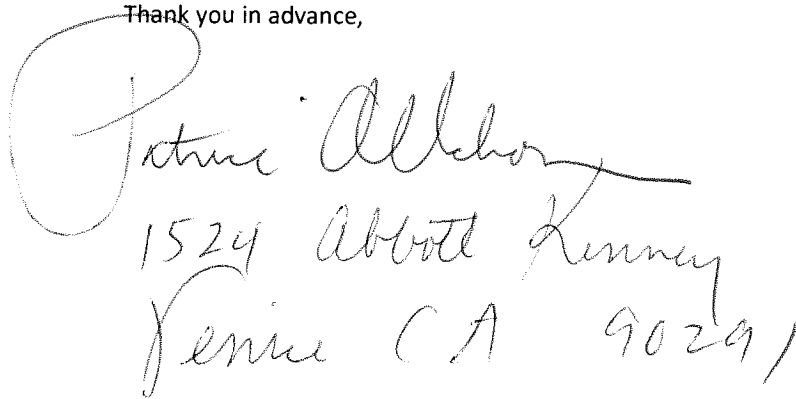 Thank you in advance,
Patrice
1524 Abbott Kenney
Venice CA 90291